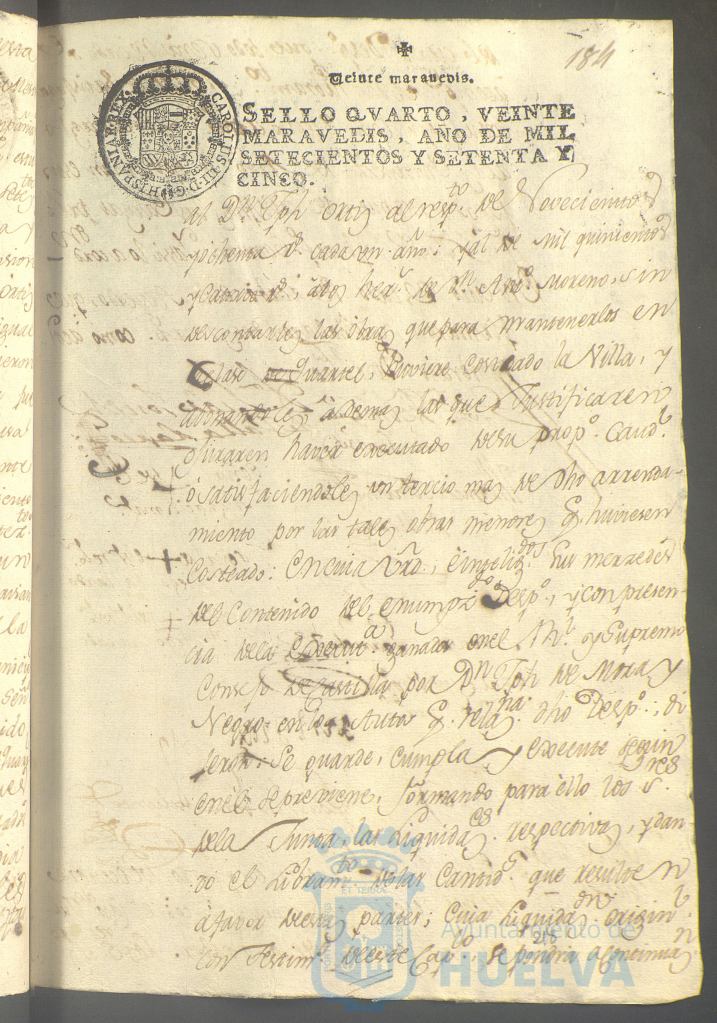 184
Veinte maravedis.
SELLO QVARTO, VEINTE
MARAVEDIS, AÑO DE MIL
SETECIENTOS Y SETENTA Y
CINCO.
CAROLUS III D G HISPANIAR REX
al Dn Jph Ortiz al respto de Novecientos
y ochenta rs cada un año; y al de mil quinientos
y catorce rs, a los hers de Dn Antº Moreno, sin
descontarles las obras que para mantenerlos en
clase de Quartel, huviere costeado la Villa, y
abonandoles ademas las que Justificaren
o juraren haver executado de su propº Caudl
ó satisfaciendoles un tercio mas de dho arrenda-
miento por las tales obras menores q huviesen
Costeado: En cuia Vrd, sus mercedes
del Contenido del Despº, y con presen-
cia de la ganada en el Rl y Supremo
Consejo de Castilla por Dn Jph de Mora y
Negro en los Autos q dho Despº, di
jeron: Se guarde, cumpla y execute segun
en él se previene, formando para ello los Sres
de la Junta, las Liquidaces respectivas, y dan-
do el Libramto de las Cantids que resulten
á favor de estas partes; Cuia Liquidan originl
con Testimº de este Caplo se pondrá a continuan
Ayuntamiento de
HUELVA